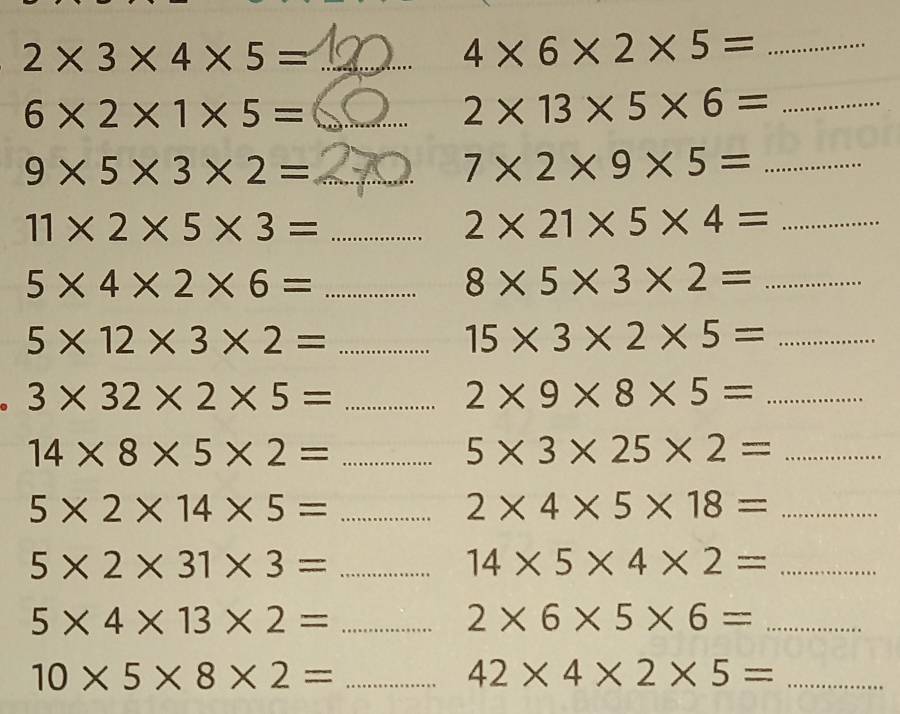 2 × 3 × 4 × 5 = 120
6 × 2 × 1 × 5 = 60
9 × 5 × 3 × 2 = 270
11 × 2 × 5 × 3 = ..........
5 × 4 × 2 × 6 = ..........
5 × 12 × 3 × 2 = ..........
3 × 32 × 2 × 5 = ..........
14 × 8 × 5 × 2 = ..........
5 × 2 × 14 × 5 = ..........
5 × 2 × 31 × 3 = ..........
5 × 4 × 13 × 2 = ..........
10 × 5 × 8 × 2 = ..........
4 × 6 × 2 × 5 = ..........
2 × 13 × 5 × 6 = ..........
7 × 2 × 9 × 5 = ..........
2 × 21 × 5 × 4 = ..........
8 × 5 × 3 × 2 = ..........
15 × 3 × 2 × 5 = ..........
2 × 9 × 8 × 5 = ..........
5 × 3 × 25 × 2 = ..........
2 × 4 × 5 × 18 = ..........
14 × 5 × 4 × 2 = ..........
2 × 6 × 5 × 6 = ..........
42 × 4 × 2 × 5 = ..........